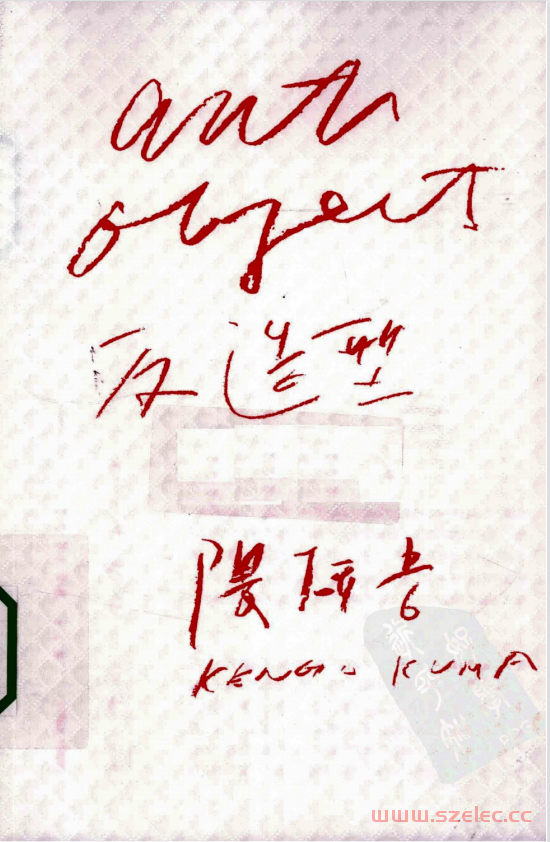 anti
object
反造型
隈研吾
KENGO KUMA
www.szelec.cc